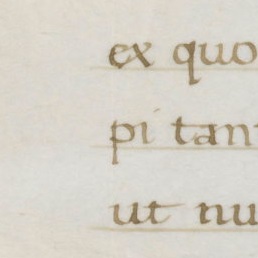 ex quo
pi tan
ut nu